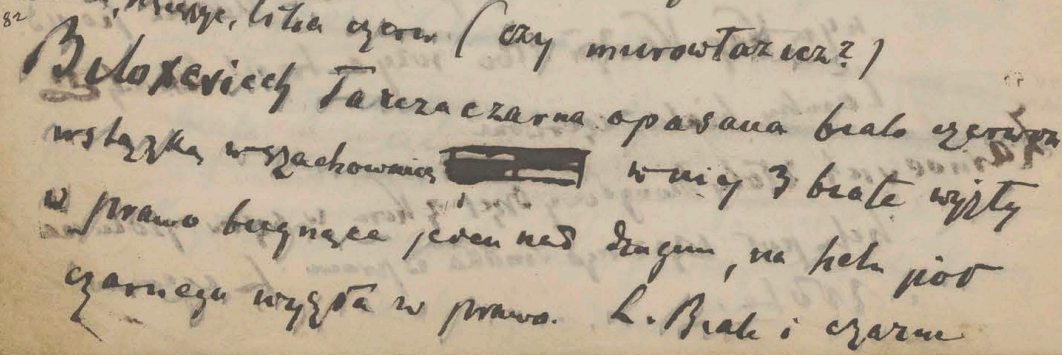 82
litra czerw (czy murowłazicz?)
Biloxeviech Tarcza czarna opasana biało czerwoną
wstążką w szachownicę w niej 3 białe wyżły
w prawo biegnące jeden nad drugim, na hełm pół
czarnego wyżła w prawo. L. Białe i czarne